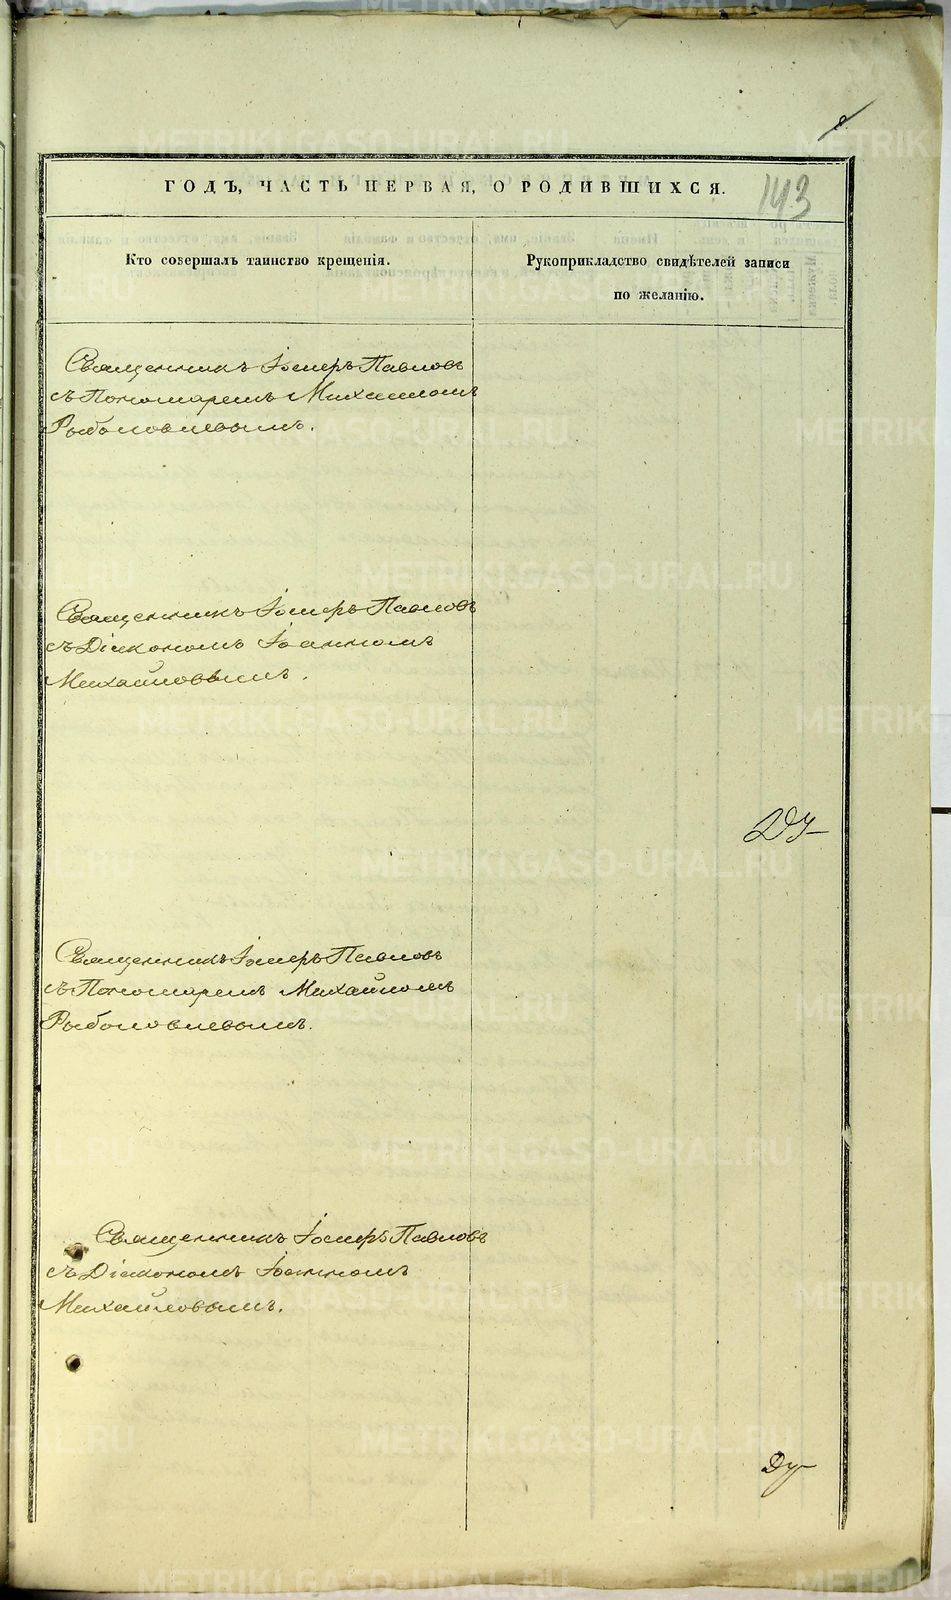 ГОДЪ, ЧАСТЬ ПЕРВАЯ, О РОДИВШИХСЯ.
143
Кто совершалъ таинство крещенія.
Рукоприкладство свидѣтелей записи
по желанію.
Священникъ Іосифъ Павловъ
съ Пономаремъ Михаиломъ
Рыболовлевымъ.
Священникъ Іосифъ Павловъ
съ Діакономъ Іоанномъ
Михайловымъ.
Священникъ Іосифъ Павловъ
съ Пономаремъ Михайломъ
Рыболовлевымъ.
Священникъ Іосифъ Павловъ
съ Діакономъ Іоанномъ
Михайловымъ.
METRIKI.GASO-URAL.RU